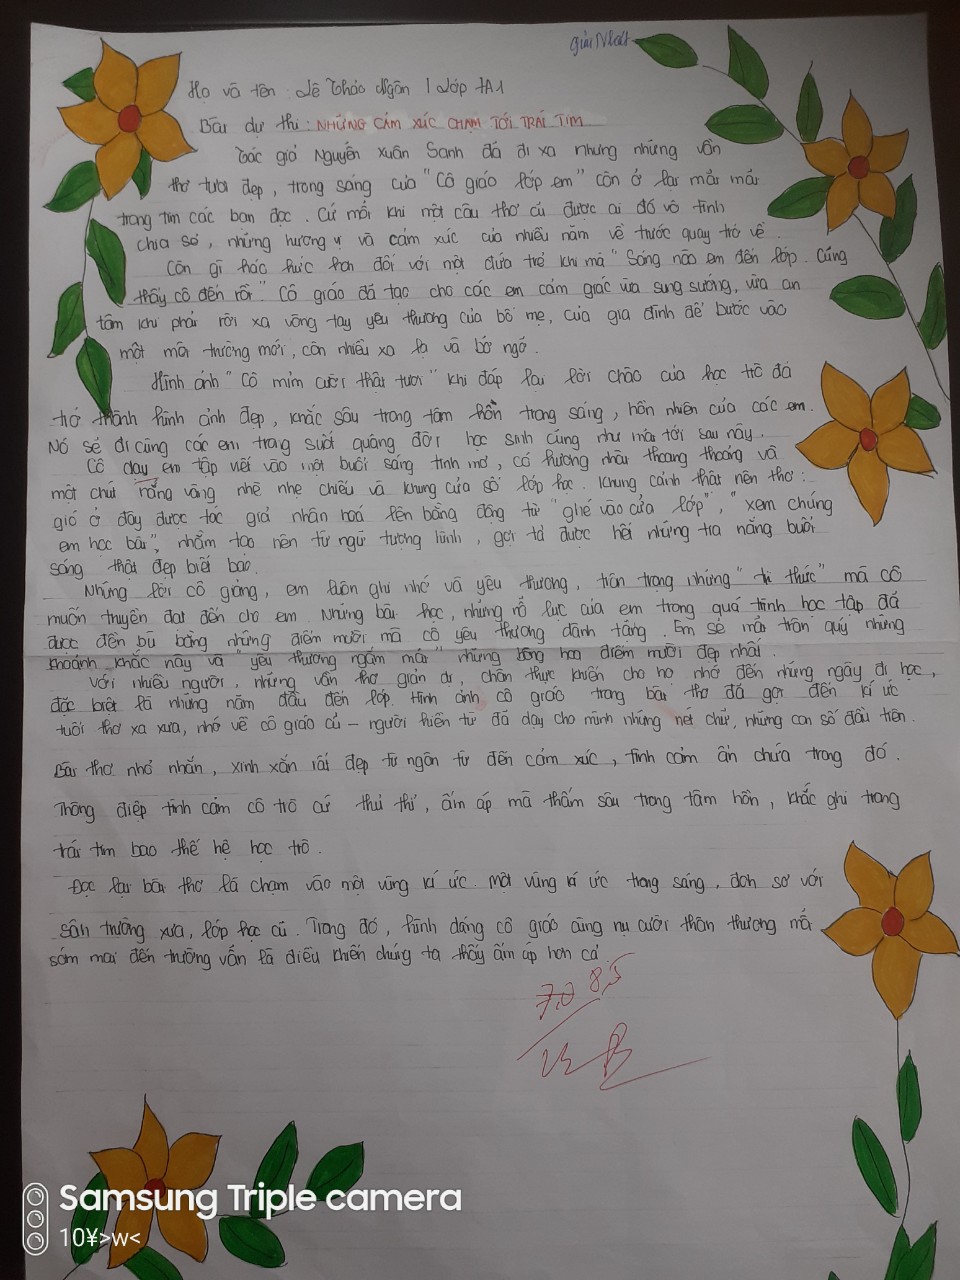 giải Nhất
Họ và tên : Lê Thảo Ngân | Lớp 7A1
Bài dự thi : NHỮNG CẢM XÚC CHẠM TỚI TRÁI TIM
Tác giả Nguyễn Xuân Sanh đã đi xa nhưng những vần
thơ tươi đẹp, trong sáng của "Cô giáo lớp em" còn ở lại mãi mãi
trong tim các bạn đọc. Cứ mỗi khi một câu thơ cũ được ai đó vô tình
chia sẻ, những hương vị và cảm xúc của nhiều năm về trước quay trở về.
Còn gì háo hức hơn đối với một đứa trẻ khi mà "Sáng nào em đến lớp. Cũng
thấy cô đến rồi" Cô giáo đã tạo cho các em cảm giác vừa sung sướng, vừa an
tâm khi phải rời xa vòng tay yêu thương của bố mẹ, của gia đình để bước vào
một môi trường mới, còn nhiều xa lạ và bỡ ngỡ.
Hình ảnh "Cô mỉm cười thật tươi" khi đáp lại lời chào của học trò đã
trở thành hình ảnh đẹp, khắc sâu trong tâm hồn trong sáng, hồn nhiên của các em.
Nó sẽ đi cùng các em trong suốt quãng đời học sinh cũng như mãi tới sau này.
Cô dạy em tập viết vào một buổi sáng tinh mơ, có hương nhài thoang thoảng và
một chút nắng vàng nhè nhẹ chiếu và khung cửa sổ lớp học. Khung cảnh thật nên thơ :
gió ở đây được tác giả nhân hoá lên bằng động từ "ghé vào cửa lớp", "xem chúng
em học bài", nhằm tạo nên từ ngữ tượng hình, gợi tả được hết những tia nắng buổi
sáng thật đẹp biết bao.
Những lời cô giảng, em luôn ghi nhớ và yêu thương, trân trọng những "tri thức" mà cô
muốn truyền đạt đến cho em. Những bài học, những nỗ lực của em trong quá trình học tập đã
được đền bù bằng những điểm mười mà cô yêu thương dành tặng. Em sẽ mãi trân quý những
khoảnh khắc này và "yêu thương ngắm mãi" những bông hoa điểm mười đẹp nhất.
Với nhiều người, những vần thơ giản dị, chân thực khiến cho họ nhớ đến những ngày đi học,
đặc biệt là những năm đầu đến lớp. Hình ảnh cô giáo trong bài thơ đã gợi đến kí ức
tuổi thơ xa xưa, nhớ về cô giáo cũ – người hiền từ đã dạy cho mình những nét chữ, những con số đầu tiên.
Bài thơ nhỏ nhắn, xinh xắn rất đẹp từ ngôn từ đến cảm xúc, tình cảm ẩn chứa trong đó.
Thông điệp tình cảm cô trò cứ thủ thỉ, ấm áp mà thấm sâu trong tâm hồn, khắc ghi trong
trái tim bao thế hệ học trò.
Đọc lại bài thơ là chạm vào một vùng kí ức. Một vùng kí ức trong sáng, đơn sơ với
sân trường xưa, lớp học cũ. Trong đó, hình dáng cô giáo cùng nụ cười thân thương mỗi
sớm mai đến trường vẫn là điều khiến chúng ta thấy ấm áp hơn cả.
7,0 8,5
Samsung Triple camera
10¥>w<